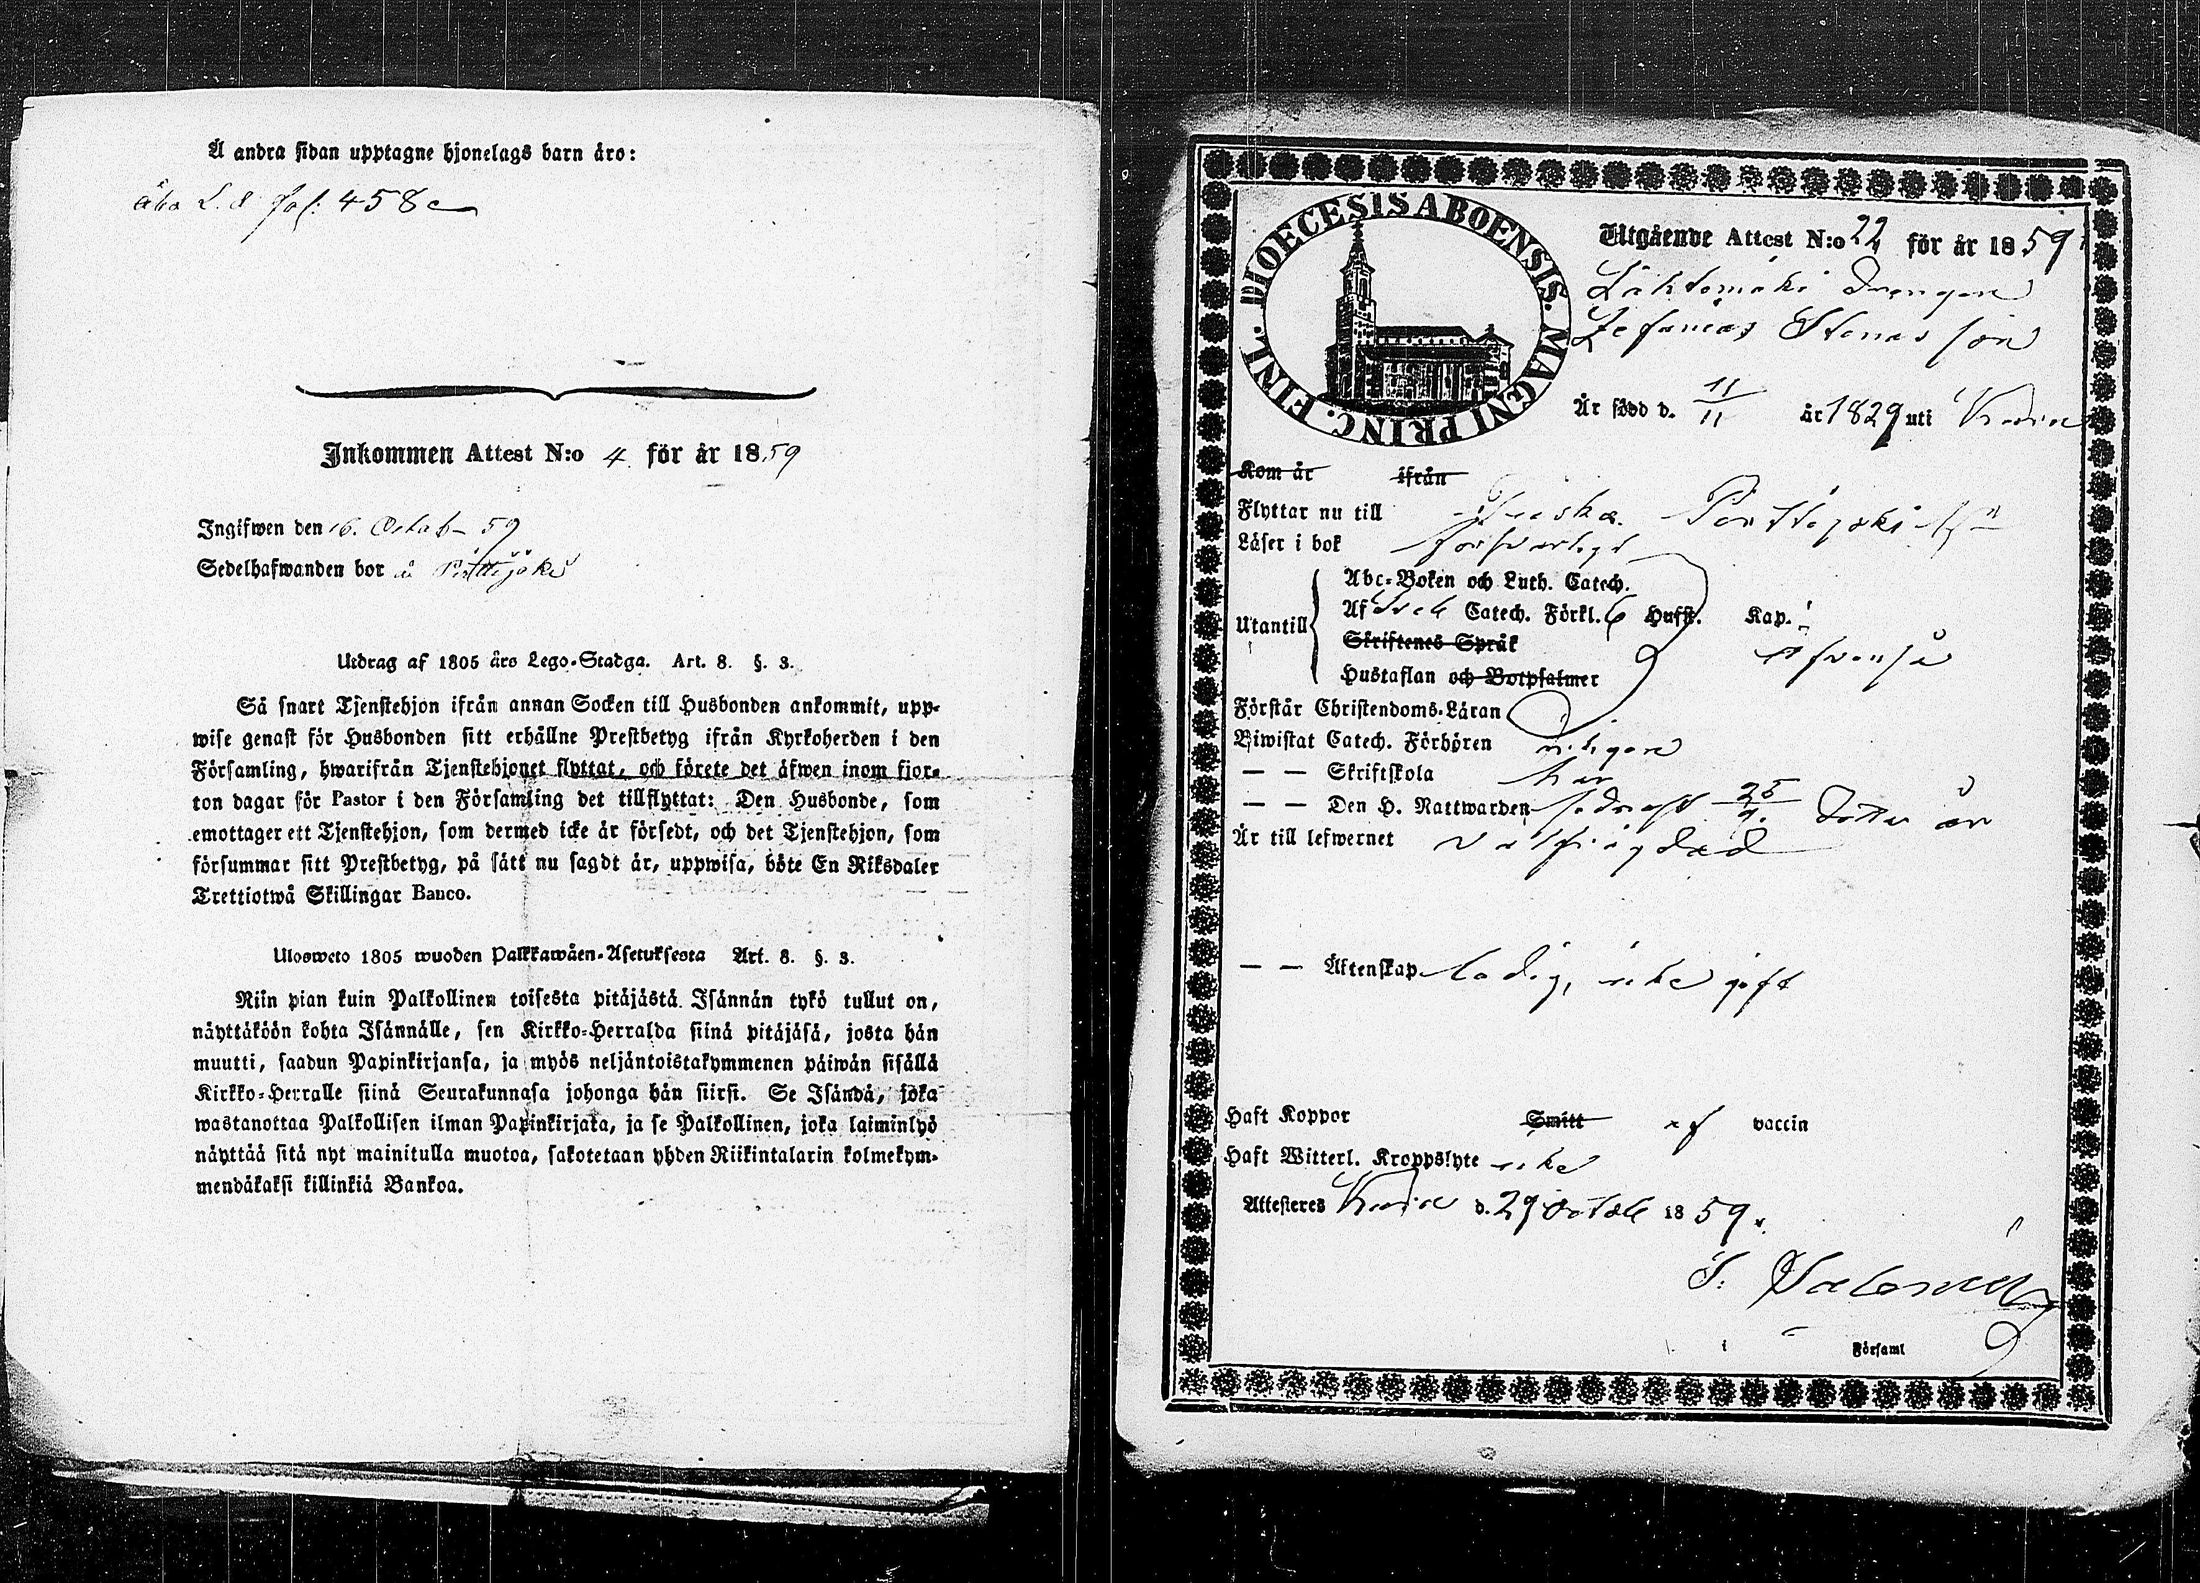 Å andra sidan upptagne hjonelags barn äro:
fol: 458
Inkommen Attest N:o 4 för år 1859
Ingifwen den 16. Octob 59
Sedelhafwanden bor å Pörttijoki
Utdrag af 1805 års Lego-Stadga. Art. 8. §. 3.
Så snart Tjenstehjon ifrån annan Socken till Husbonden ankommit, upp-
wise genast för Husbonden sitt erhållne Prestbetyg ifrån Kyrkoherden i den
Församling, hwarifrån Tjenstehjonet flyttat, och förete det äfwen inom fjor-
ton dagar för Pastor i den Församling det tillflyttat: Den Husbonde, som
emottager ett Tjenstehjon, som dermed icke är försedt, och det Tjenstehjon, som
försummar sitt Prestbetyg, på sätt nu sagdt är, uppwisa, böte En Riksdaler
Trettiotwå Skillingar Banco.
Ulosweto 1805 wuoden Palkkawäen-Asetuksesta Art. 8. §. 3.
Niin pian kuin Palkollinen toisesta pitäjästä Isännän tykö tullut on,
näyttäköön kohta Isännälle, sen Kirkko-Herralda siinä pitäjäsä, josta hän
muutti, saadun Papinkirjansa, ja myös neljäntoistakymmenen päiwän sisällä
Kirkko-Herralle siinä Seurakunnasa johonga hän siirsi. Se Isändä, joka
wastanottaa Palkollisen ilman Papinkirjata, ja se Palkollinen, joka laiminlyö
näyttää sitä nyt mainitulla muotoa, sakotetaan yhden Riikintalarin kolmekym-
mendäkaksi killinkiä Bankoa.
DIOECESIS ABOENSIS. MAGNI PRINC. FINL.
Utgående Attest N:o 22 för år 1859
Lähtömäki Drengen
Zefanias Stenasson
Är född d. 11/11 år 1829 uti
Kom år ifrån
Flyttar nu till Pörttijoki
Läser i bok försvarligt
Utantill
Abc-Boken och Luth. Catech.
Af Catech. Förkl. 6 Hufst. Kap.
Skriftenes Språk
Hustaflan och Botpsalmer
Förstår Christendoms-Läran
Biwistat Catech. Förhören
— — Skriftskola
— — Den H. Nattwarden 25/9
Är till lefwernet välfrägdad
— — Äktenskap ledig, icke gift
Haft Koppor Smitt af vaccin
Haft Witterl. Kroppslyte icke
Attesteres d. 29 Octob 1859.
i Församl